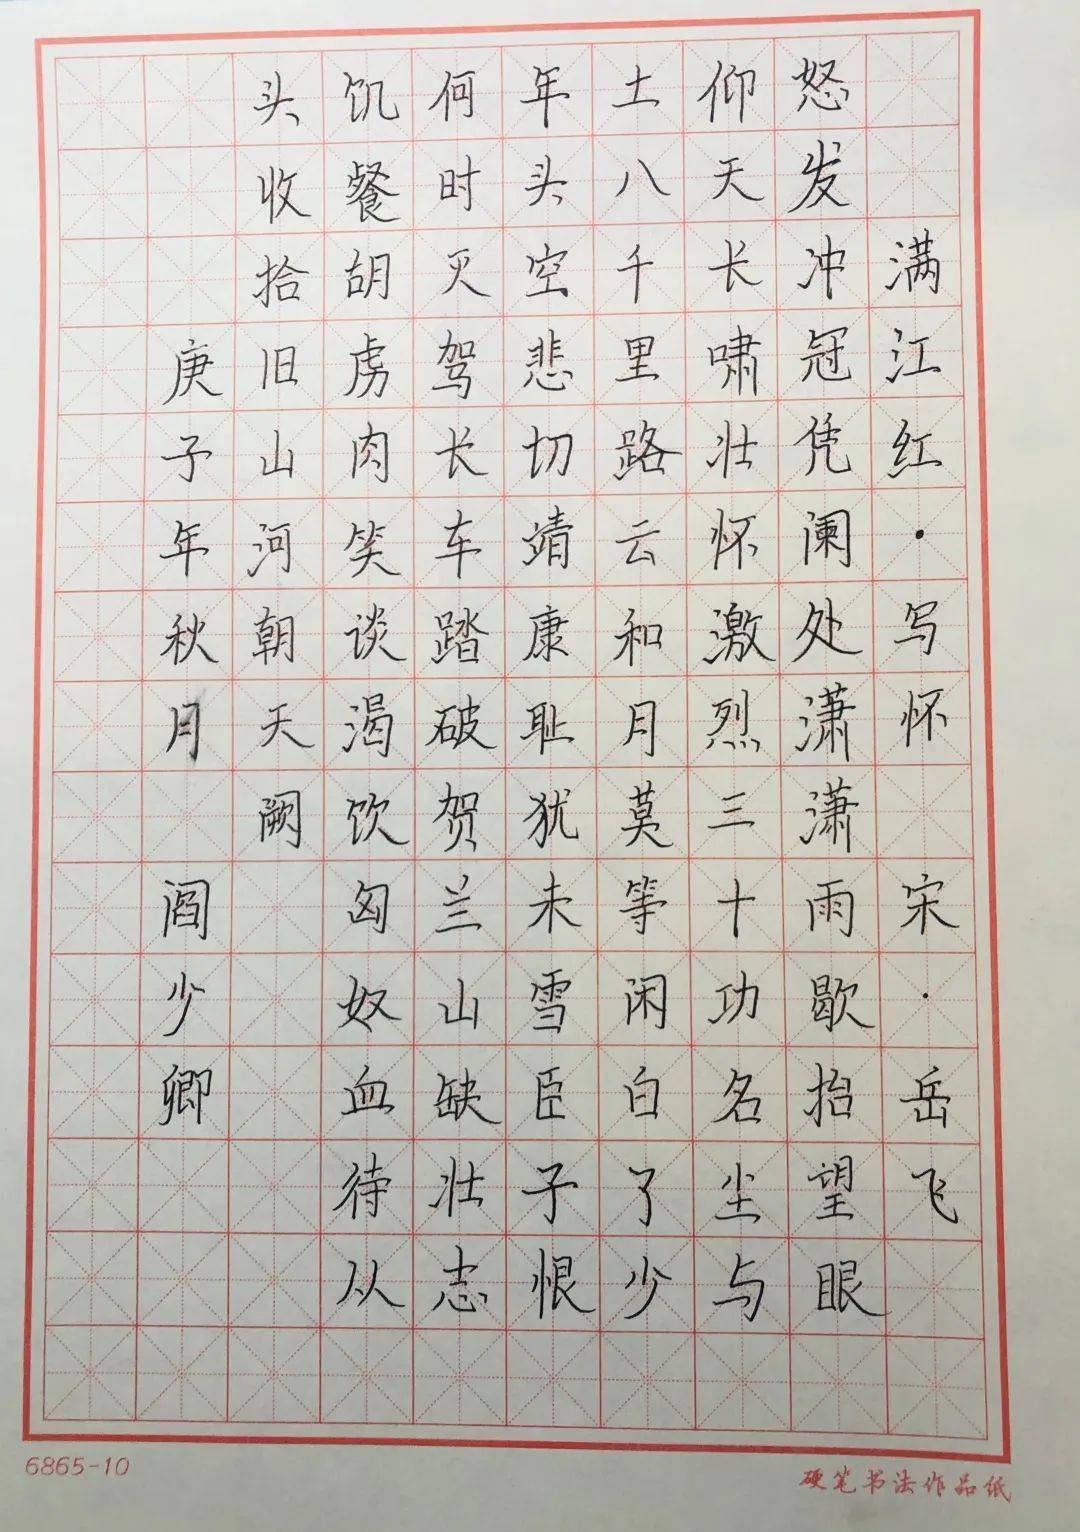 满江红·写怀 宋·岳飞
怒发冲冠凭阑处潇潇雨歇抬望眼
仰天长啸壮怀激烈三十功名尘与
土八千里路云和月莫等闲白了少
年头空悲切靖康耻犹未雪臣子恨
何时灭驾长车踏破贺兰山缺壮志
饥餐胡虏肉笑谈渴饮匈奴血待从
头收拾旧山河朝天阙
庚子年秋月 阎少卿
6865-10
硬笔书法作品纸